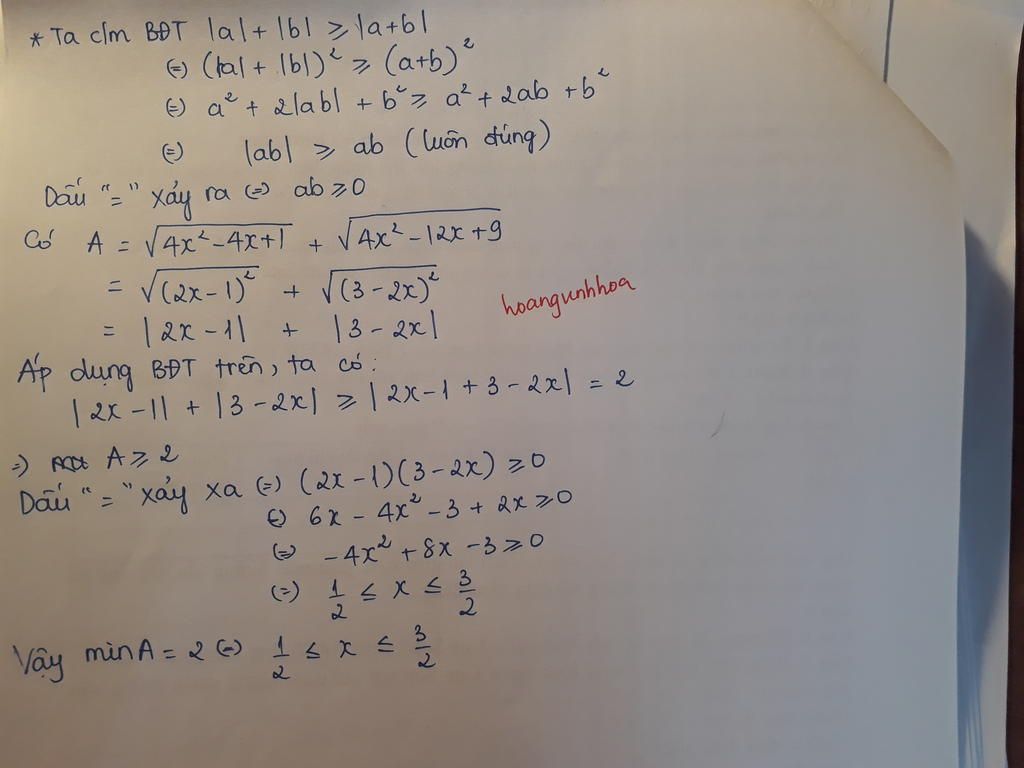 * Ta c/m BĐT |a| + |b| ⩾ |a+b|
(=) (|a| + |b|)² ⩾ (a+b)²
(=) a² + 2|ab| + b² ⩾ a² + 2ab + b²
(=) |ab| ⩾ ab (luôn đúng)
Dấu "=" xảy ra (=) ab ⩾ 0
Có A = √(4x² - 4x + 1) + √(4x² - 12x + 9)
= √((2x-1)²) + √((3-2x)²)
= |2x-1| + |3-2x|
hoangunhhoa
Áp dụng BĐT trên, ta có:
|2x-1| + |3-2x| ⩾ |2x-1 + 3-2x| = 2
=) A ⩾ 2
Dấu "=" xảy xa (=) (2x-1)(3-2x) ⩾ 0
(=) 6x - 4x² - 3 + 2x ⩾ 0
(=) -4x² + 8x - 3 ⩾ 0
(=) 1/2 ≤ x ≤ 3/2
Vậy min A = 2 (=) 1/2 ≤ x ≤ 3/2